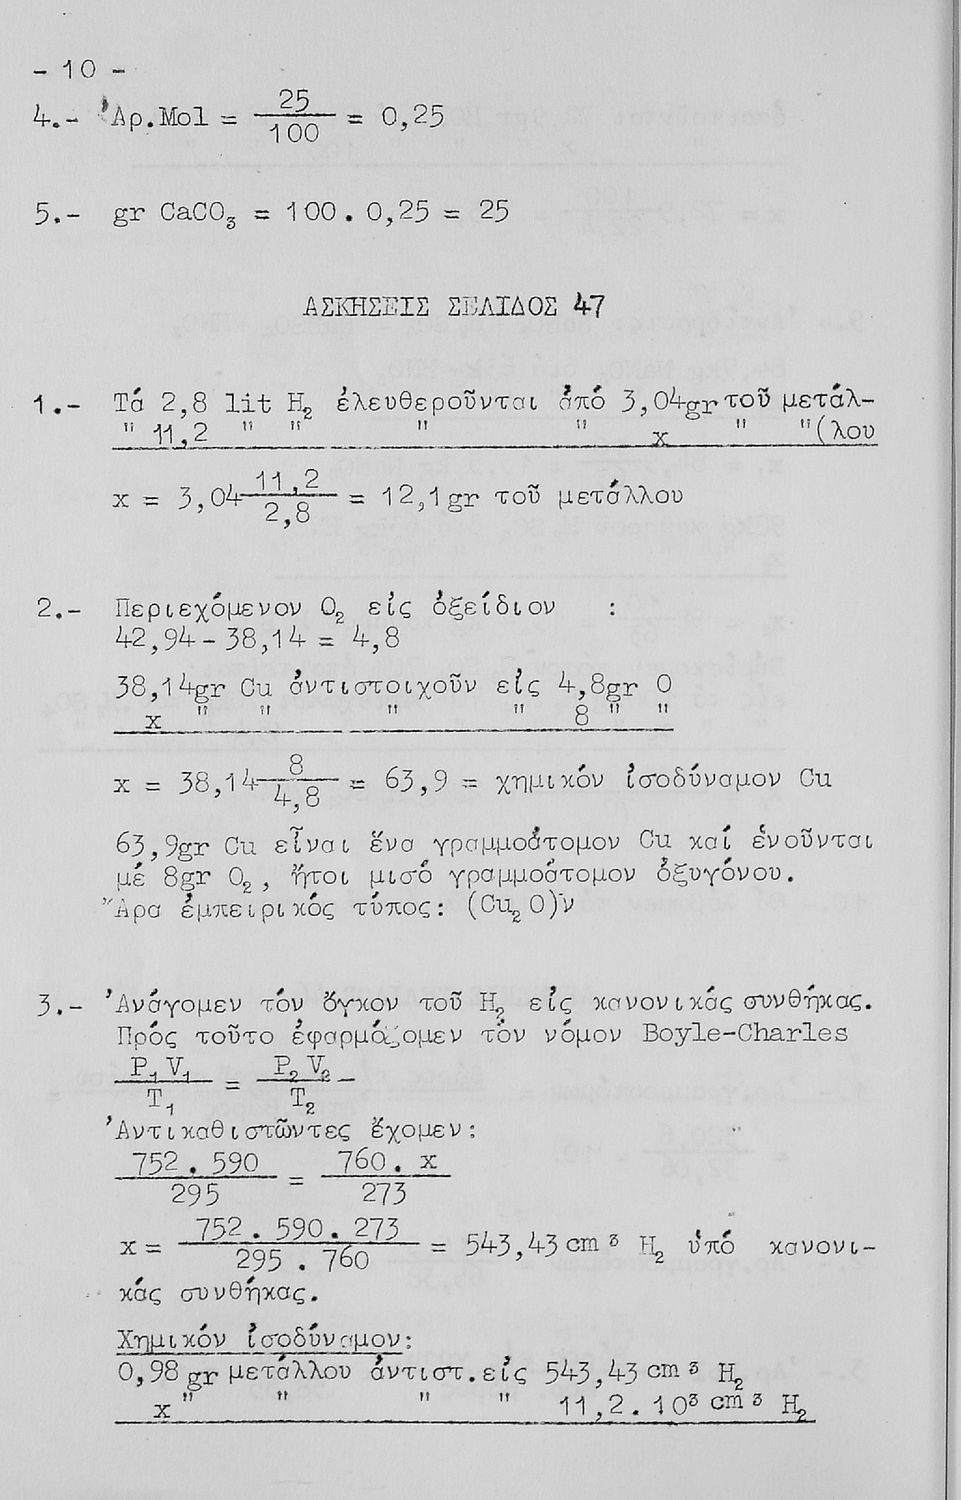 - 10 -
4.- Ἀρ.Mol = 25/100 = 0,25
5.- gr CaCO₃ = 100 . 0,25 = 25
ΑΣΚΗΣΕΙΣ ΣΕΛΙΔΟΣ 47
1.- Τά 2,8 lit H₂ ἐλευθεροῦνται ἀπό 3,04gr τοῦ μετάλ-
" 11,2 " " " " x " "(λου
x = 3,04 11,2/2,8 = 12,1gr τοῦ μετάλλου
2.- Περιεχόμενον O₂ εἰς ὀξείδιον :
42,94 - 38,14 = 4,8
38,14gr Cu ἀντιστοιχοῦν εἰς 4,8gr O
x " " " " 8 " "
x = 38,14 8/4,8 = 63,9 = χημικόν ἰσοδύναμον Cu
63,9gr Cu εἶναι ἕνα γραμμοάτομον Cu καί ἑνοῦνται
μέ 8gr O₂, ἤτοι μισό γραμμοάτομον ὀξυγόνου.
Ἄρα ἐμπειρικός τύπος: (Cu₂O)ν
3.- Ἀνάγομεν τόν ὄγκον τοῦ H₂ εἰς κανονικάς συνθήκας.
Πρός τοῦτο ἐφαρμόζομεν τόν νόμον Boyle-Charles
P₁V₁/T₁ = P₂V₂/T₂
Ἀντικαθιστῶντες ἔχομεν:
752 . 590/295 = 760 . x/273
x = 752 . 590 . 273/295 . 760 = 543,43 cm³ H₂ ὑπό κανονι-
κάς συνθήκας.
Χημικόν ἰσοδύναμον:
0,98 gr μετάλλου ἀντιστ. εἰς 543,43 cm³ H₂
x " " " " 11,2 . 10³ cm³ H₂